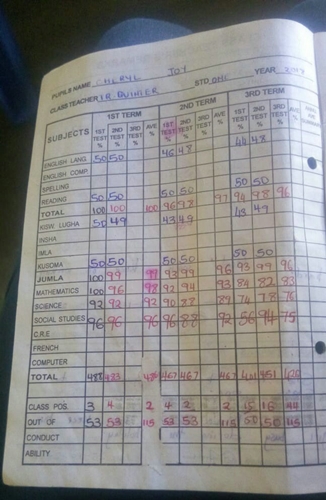 PUPILS NAME CHERYL JOY STD ONE YEAR
CLASS TEACHER
SUBJECTS 1ST TERM 2ND TERM 3RD TERM
1ST TEST % 2ND TEST % 3RD TEST % AVE % 1ST TEST % 2ND TEST % 3RD TEST % AVE % 1ST TEST % 2ND TEST % 3RD TEST % AVE %
ENGLISH LANG. 50 50 46 48 44 48
ENGLISH COMP.
SPELLING
READING 50 50 50 50 50 50
TOTAL 100 100 100 96 98 97 94 98 96
KISW. LUGHA 50 49 43 49 43 49
INSHA
IMLA
KUSOMA 50 50 50 50 50 50
JUMLA 100 99 99 93 99 96 93 99 96
MATHEMATICS 100 96 98 92 94 93 84 82 83
SCIENCE 92 92 92 90 88 89 74 78 76
SOCIAL STUDIES 96 96 96 96 88 92 56 94 75
C.R.E
FRENCH
COMPUTER
TOTAL 488 483 467 467 467 401
CLASS POS. 3 4 2 4 2 2 15 16 44
OUT OF 53 53 115 53 53 115 50 50 115
CONDUCT
ABILITY